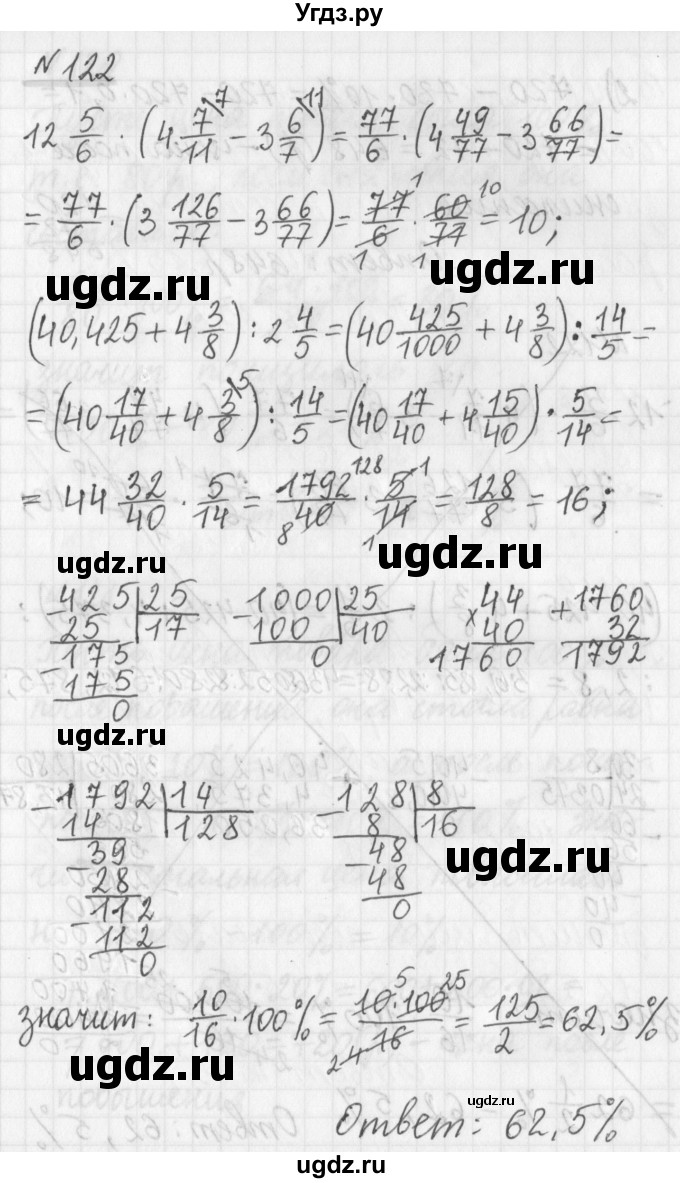 Угдз.ру
№122
12 5/6 · (4 7/11 ↗7 − 3 6/7 ↗11) = 77/6 · (4 49/77 − 3 66/77) =
= 77/6 · (3 126/77 − 3 66/77) = 77 1/6 1 · 60 10/77 1 = 10;
ugdz.ru ugdz.ru
(40,425 + 4 3/8) : 2 4/5 = (40 425/1000 + 4 3/8) : 14/5 =
= (40 17/40 + 4 3/8 ↖5) : 14/5 = (40 17/40 + 4 15/40) · 5/14 =
= 44 32/40 · 5/14 = 1792 128/40 8 · 5 1/14 1 = 128/8 = 16;
ugdz.ru ugdz.ru
−425 | 25 −1000 | 25 ×44 +1760
25 | 17 100 | 40 40 32
−175 0 1760 1792
175
0
ugdz.ru
−1792 | 14 −128 | 8
14 | 128 8 | 16
−39 −48
28 48
−112 0
112
0
ugdz.ru
значит: 10/16 · 100% = 10 5 · 100 25/16 4 2 = 125/2 = 62,5%
ugdz.ru ugdz.ru
Ответ: 62,5%
ugdz.ru